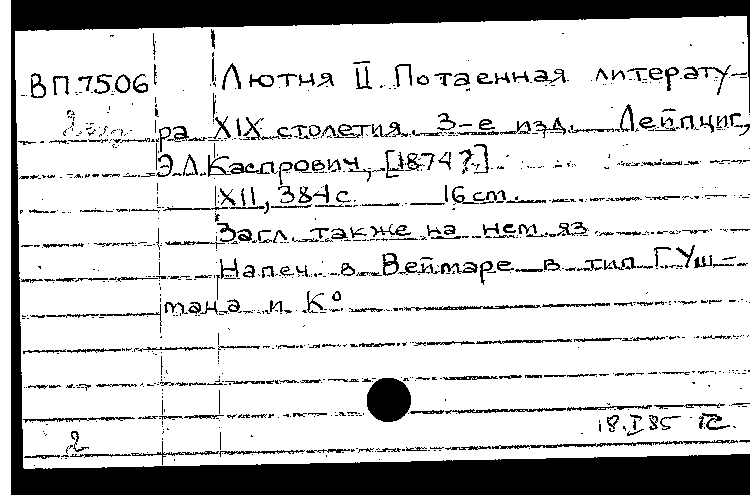 ВП 7506 Лютня II. Потаенная литерату-
2 экз ра XIX столетия. 3-е изд. Лейпциг,
Э.Л.Каспрович, [1874?]
XII, 384 с. 16 cm.
Загл. также на нем. яз.
Напеч. в Веймаре в тип. Г. Уш-
мана и К°
18.I 85
2